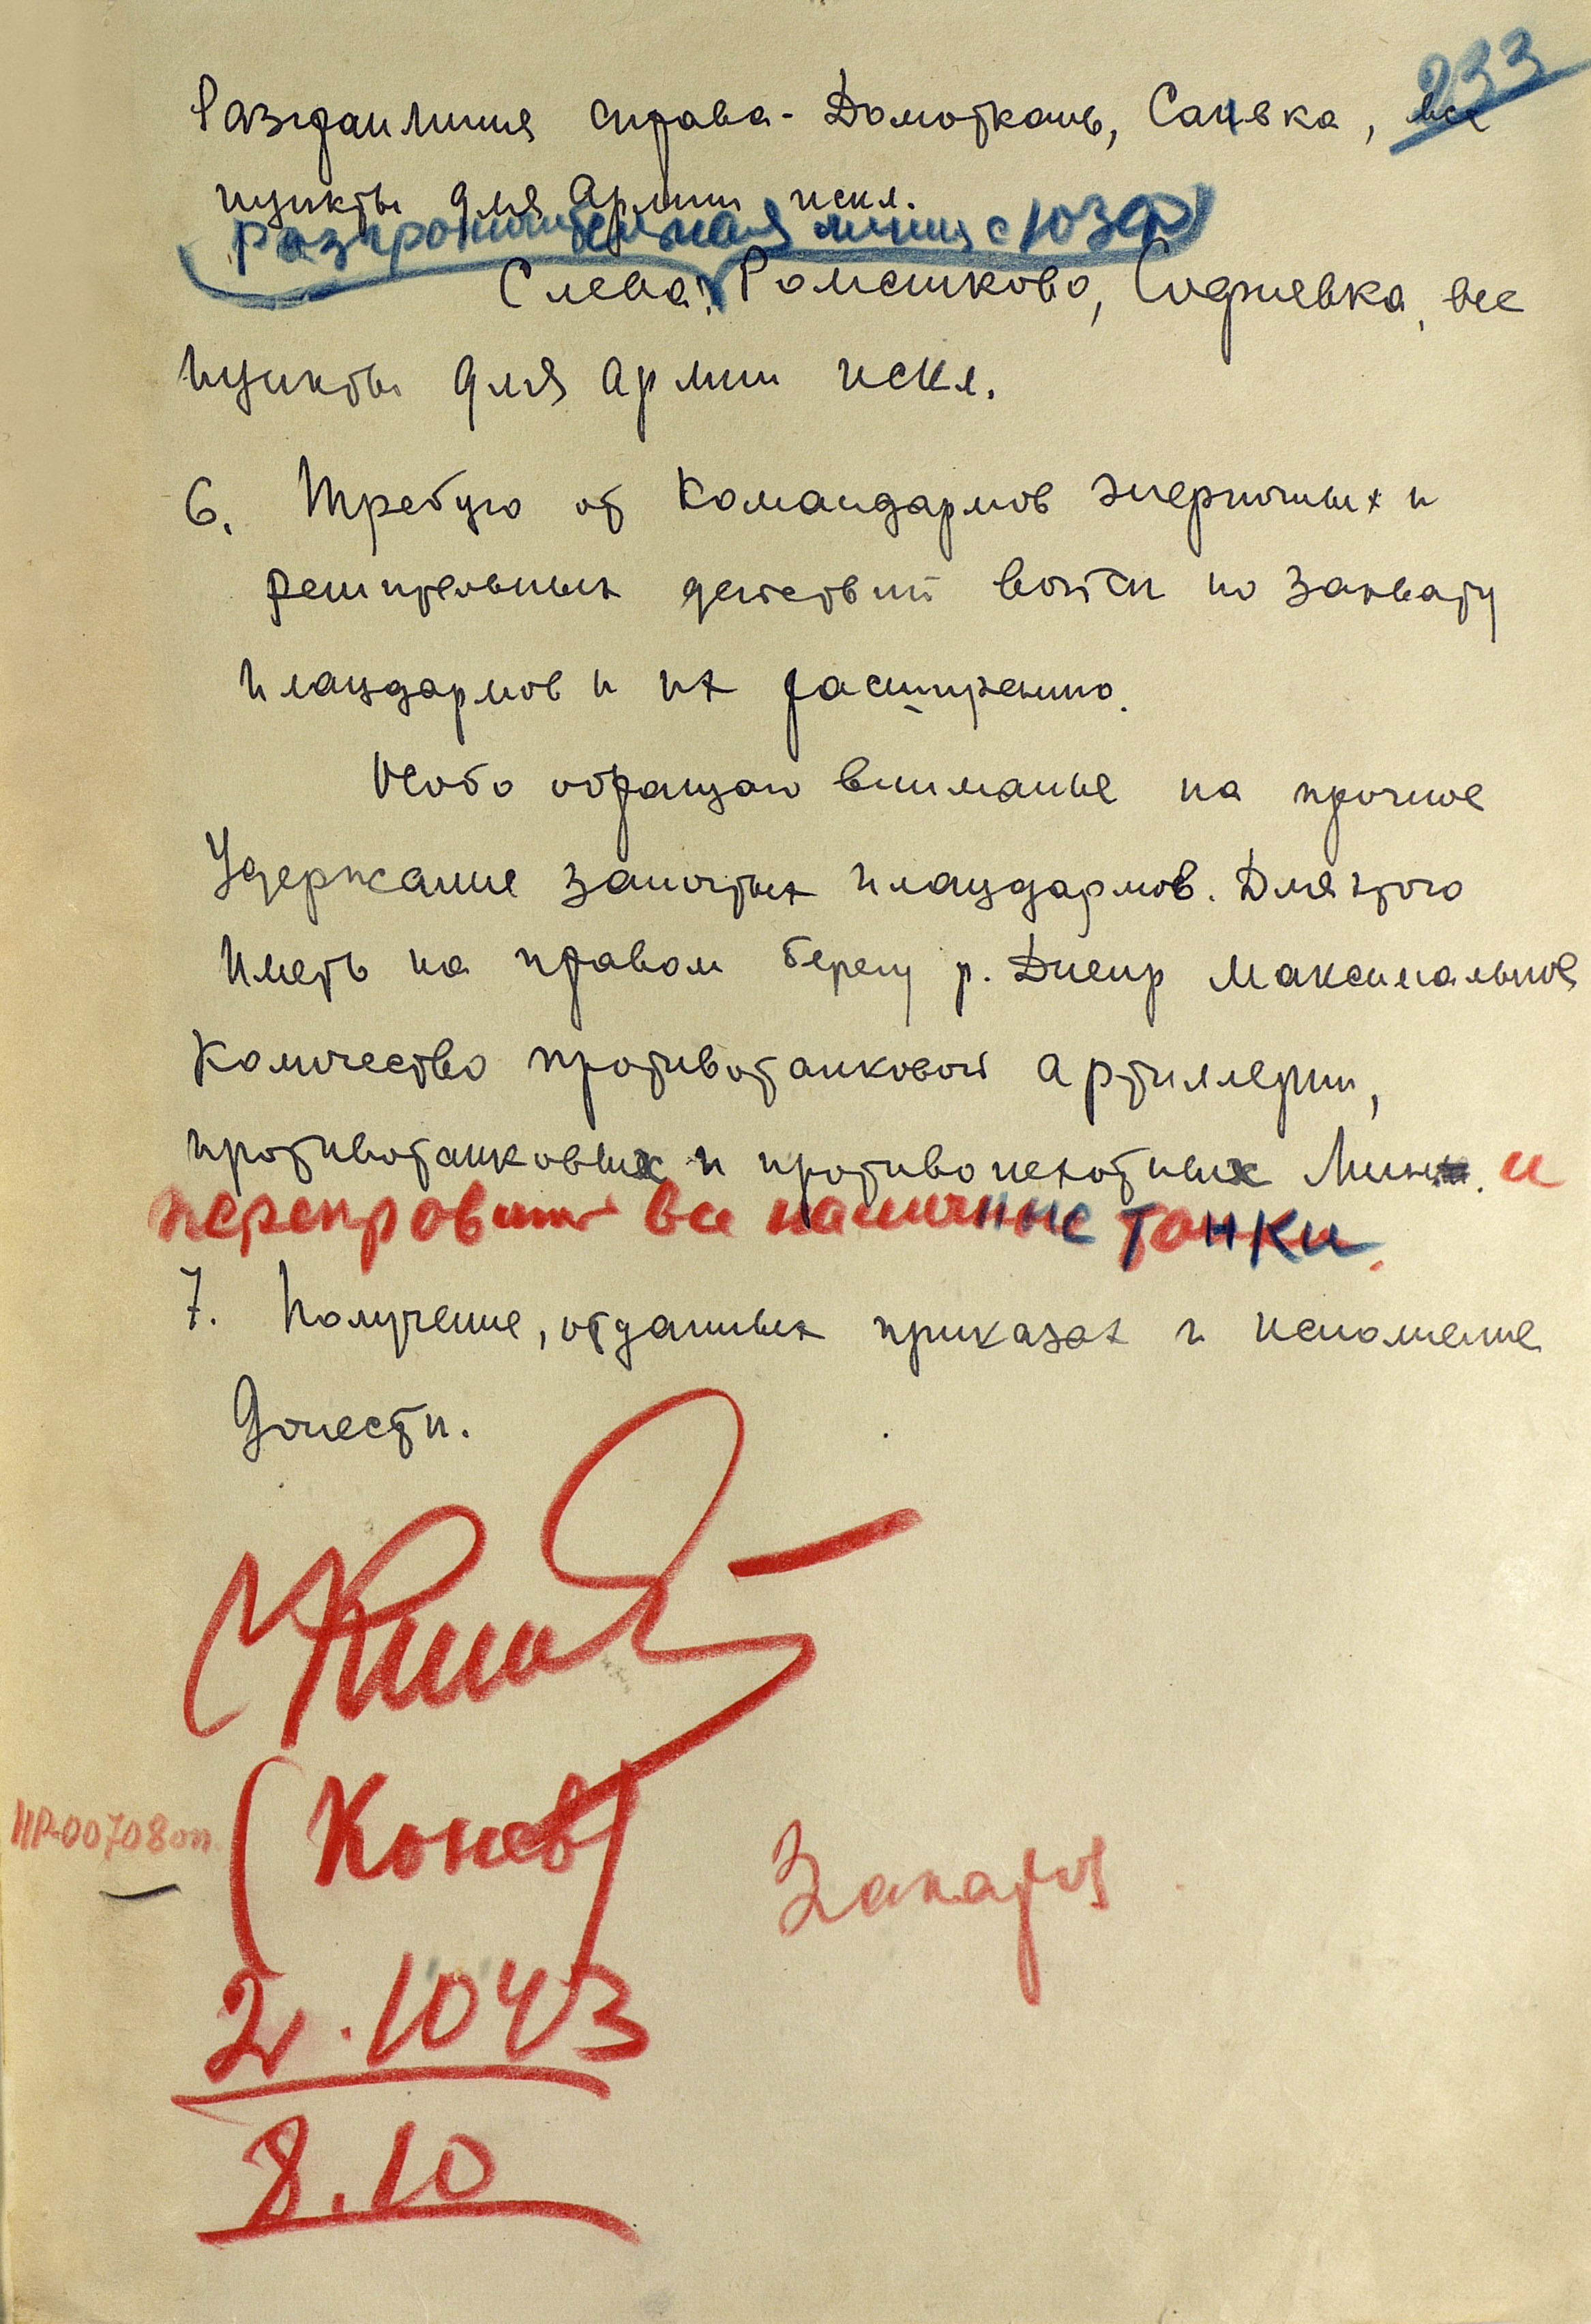 233
Разгранлиния справа - Домоткань, Саевка, все
пункты для Армии искл.
разграничительная линия с ЮЗФ
Слева: Ромашково, Софиевка, все
пункты для Армии искл.
6. Требую от Командармов энергичных и
решительных действий войск по захвату
плацдармов и их расширению.
Особо обращаю внимание на прочное
Удержание занятых плацдармов. Для этого
Иметь на правом берегу р. Днепр максимальное
Количество противотанковой артиллерии,
противотанковых и противопехотных Мин и
переправить все наличные танки.
7. Получение, отданных приказах и исполнение
Донести.
(Конев)
НР-00708оп
Захаров
2.10 43
8.10